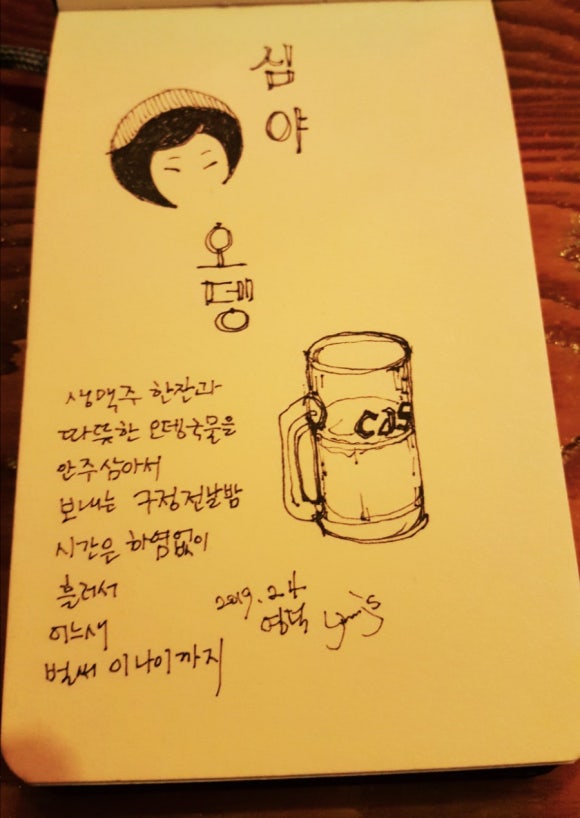 심
야
오
뎅
cas
생맥주 한잔과
따뜻한 오뎅국물을
안주삼아서
보내는 구정전날밤
시간은 하염없이
흘러서
어느새
벌써 이나이까지
2019. 2.4
영덕